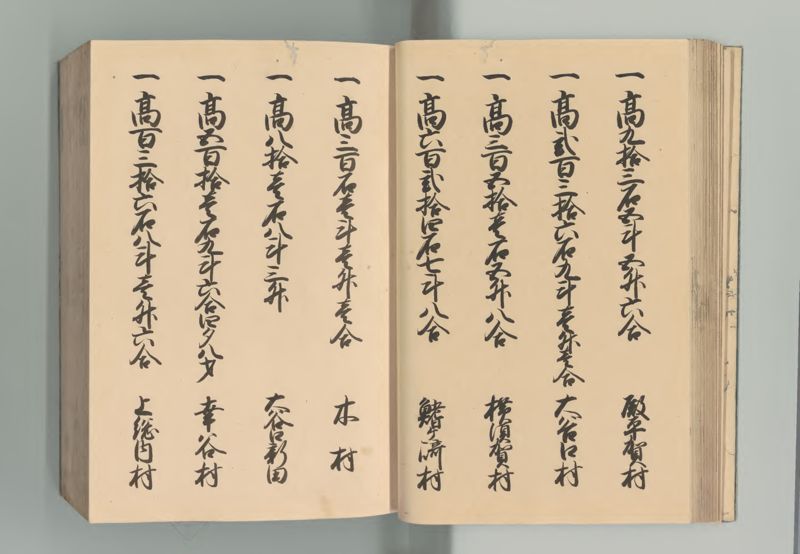 一 高九拾三石五斗五升六合 殿平賀村
一 高弐百三拾六石九斗壱升壱合 大谷口村
一 高三百五拾壱石五升八合 横須賀村
一 高六百弐拾四石七斗八合 鰭ヶ崎村
一 高三百石壱斗壱升壱合 木村
一 高八拾壱石八斗三升 大谷口新田
一 高五百拾壱石九斗六合四夕八才 幸谷村
一 高百三拾六石八斗壱升六合 上総内村